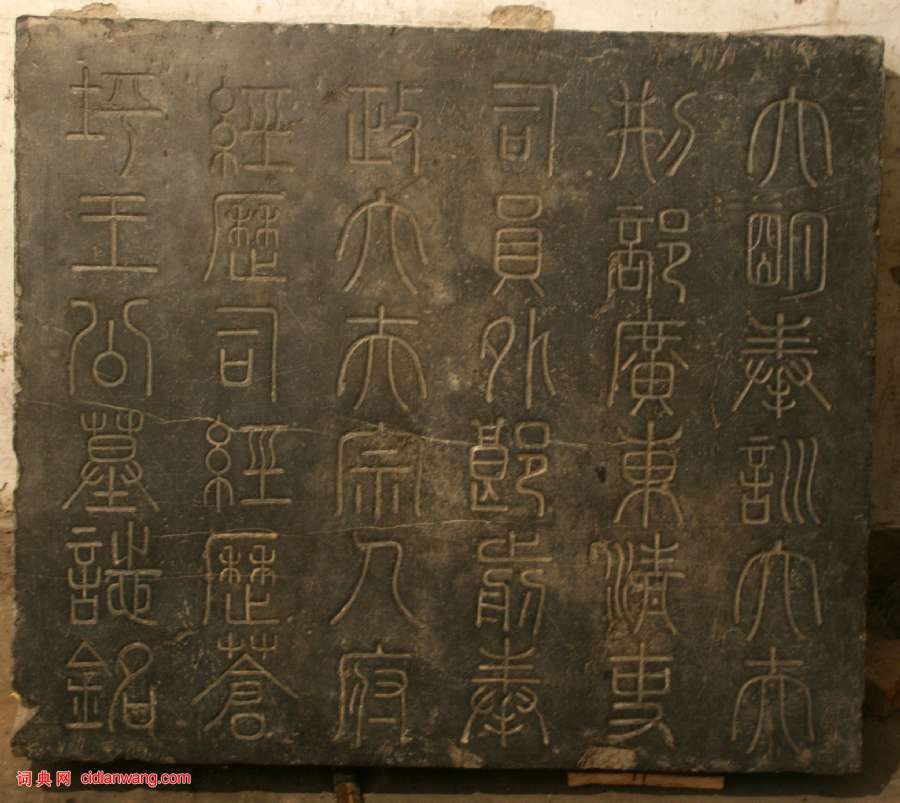 大明奉訓大夫
刑部廣東清吏
司員外郎前奉
政大夫宗人府
經歷司經歷蒼
坪王公墓誌銘
词典网 cidianwang.com